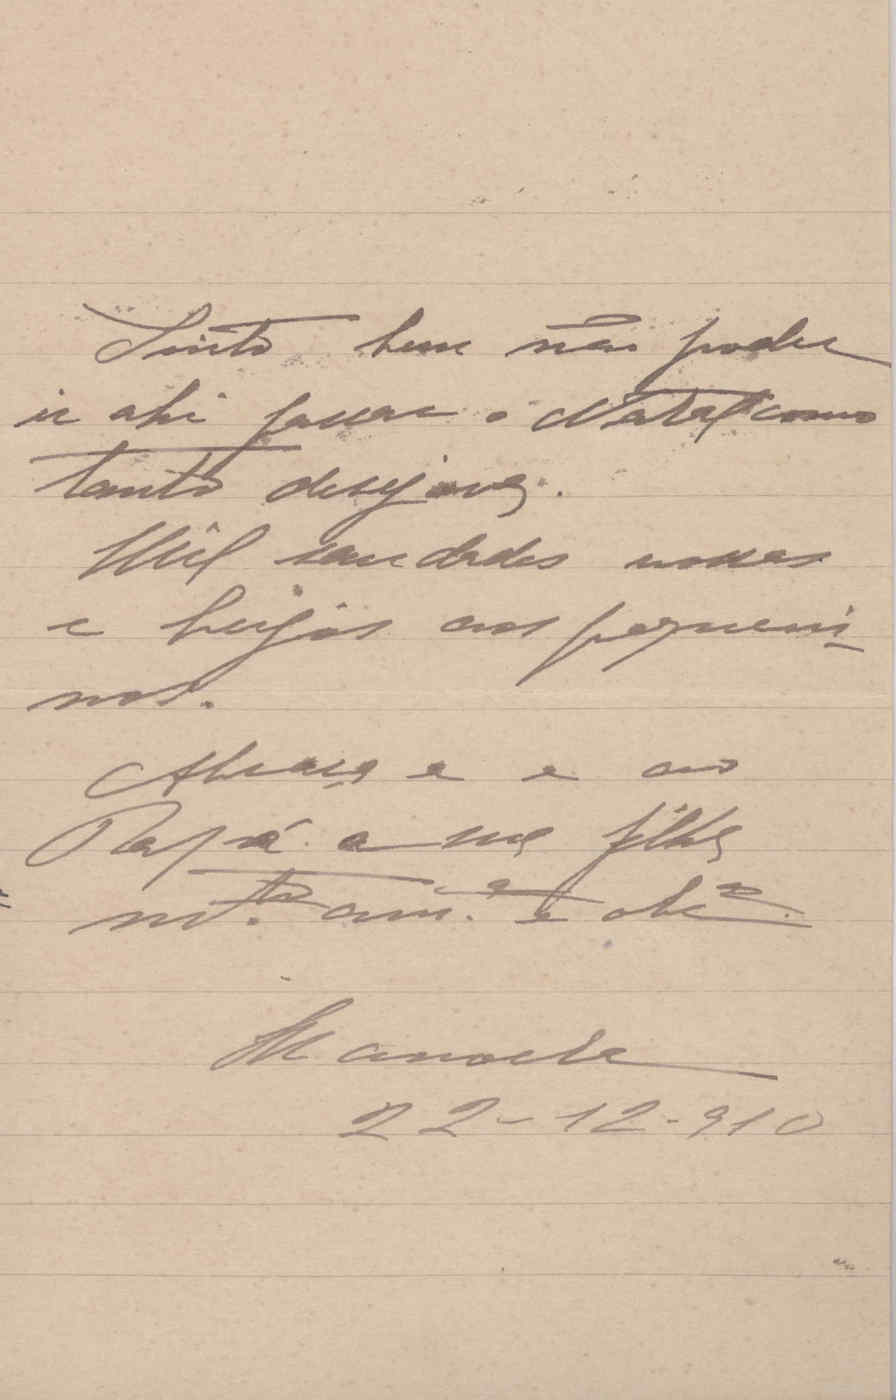 Sinto bem não poder
ir ahi passar o Natal como
tanto desejava.
Mil saudades nossas
e beijos aos pequeni-
nos.
Abraça-a e ao
Papá a sua filha
mt.to am.a e ob.a
Manoela
22-12-910